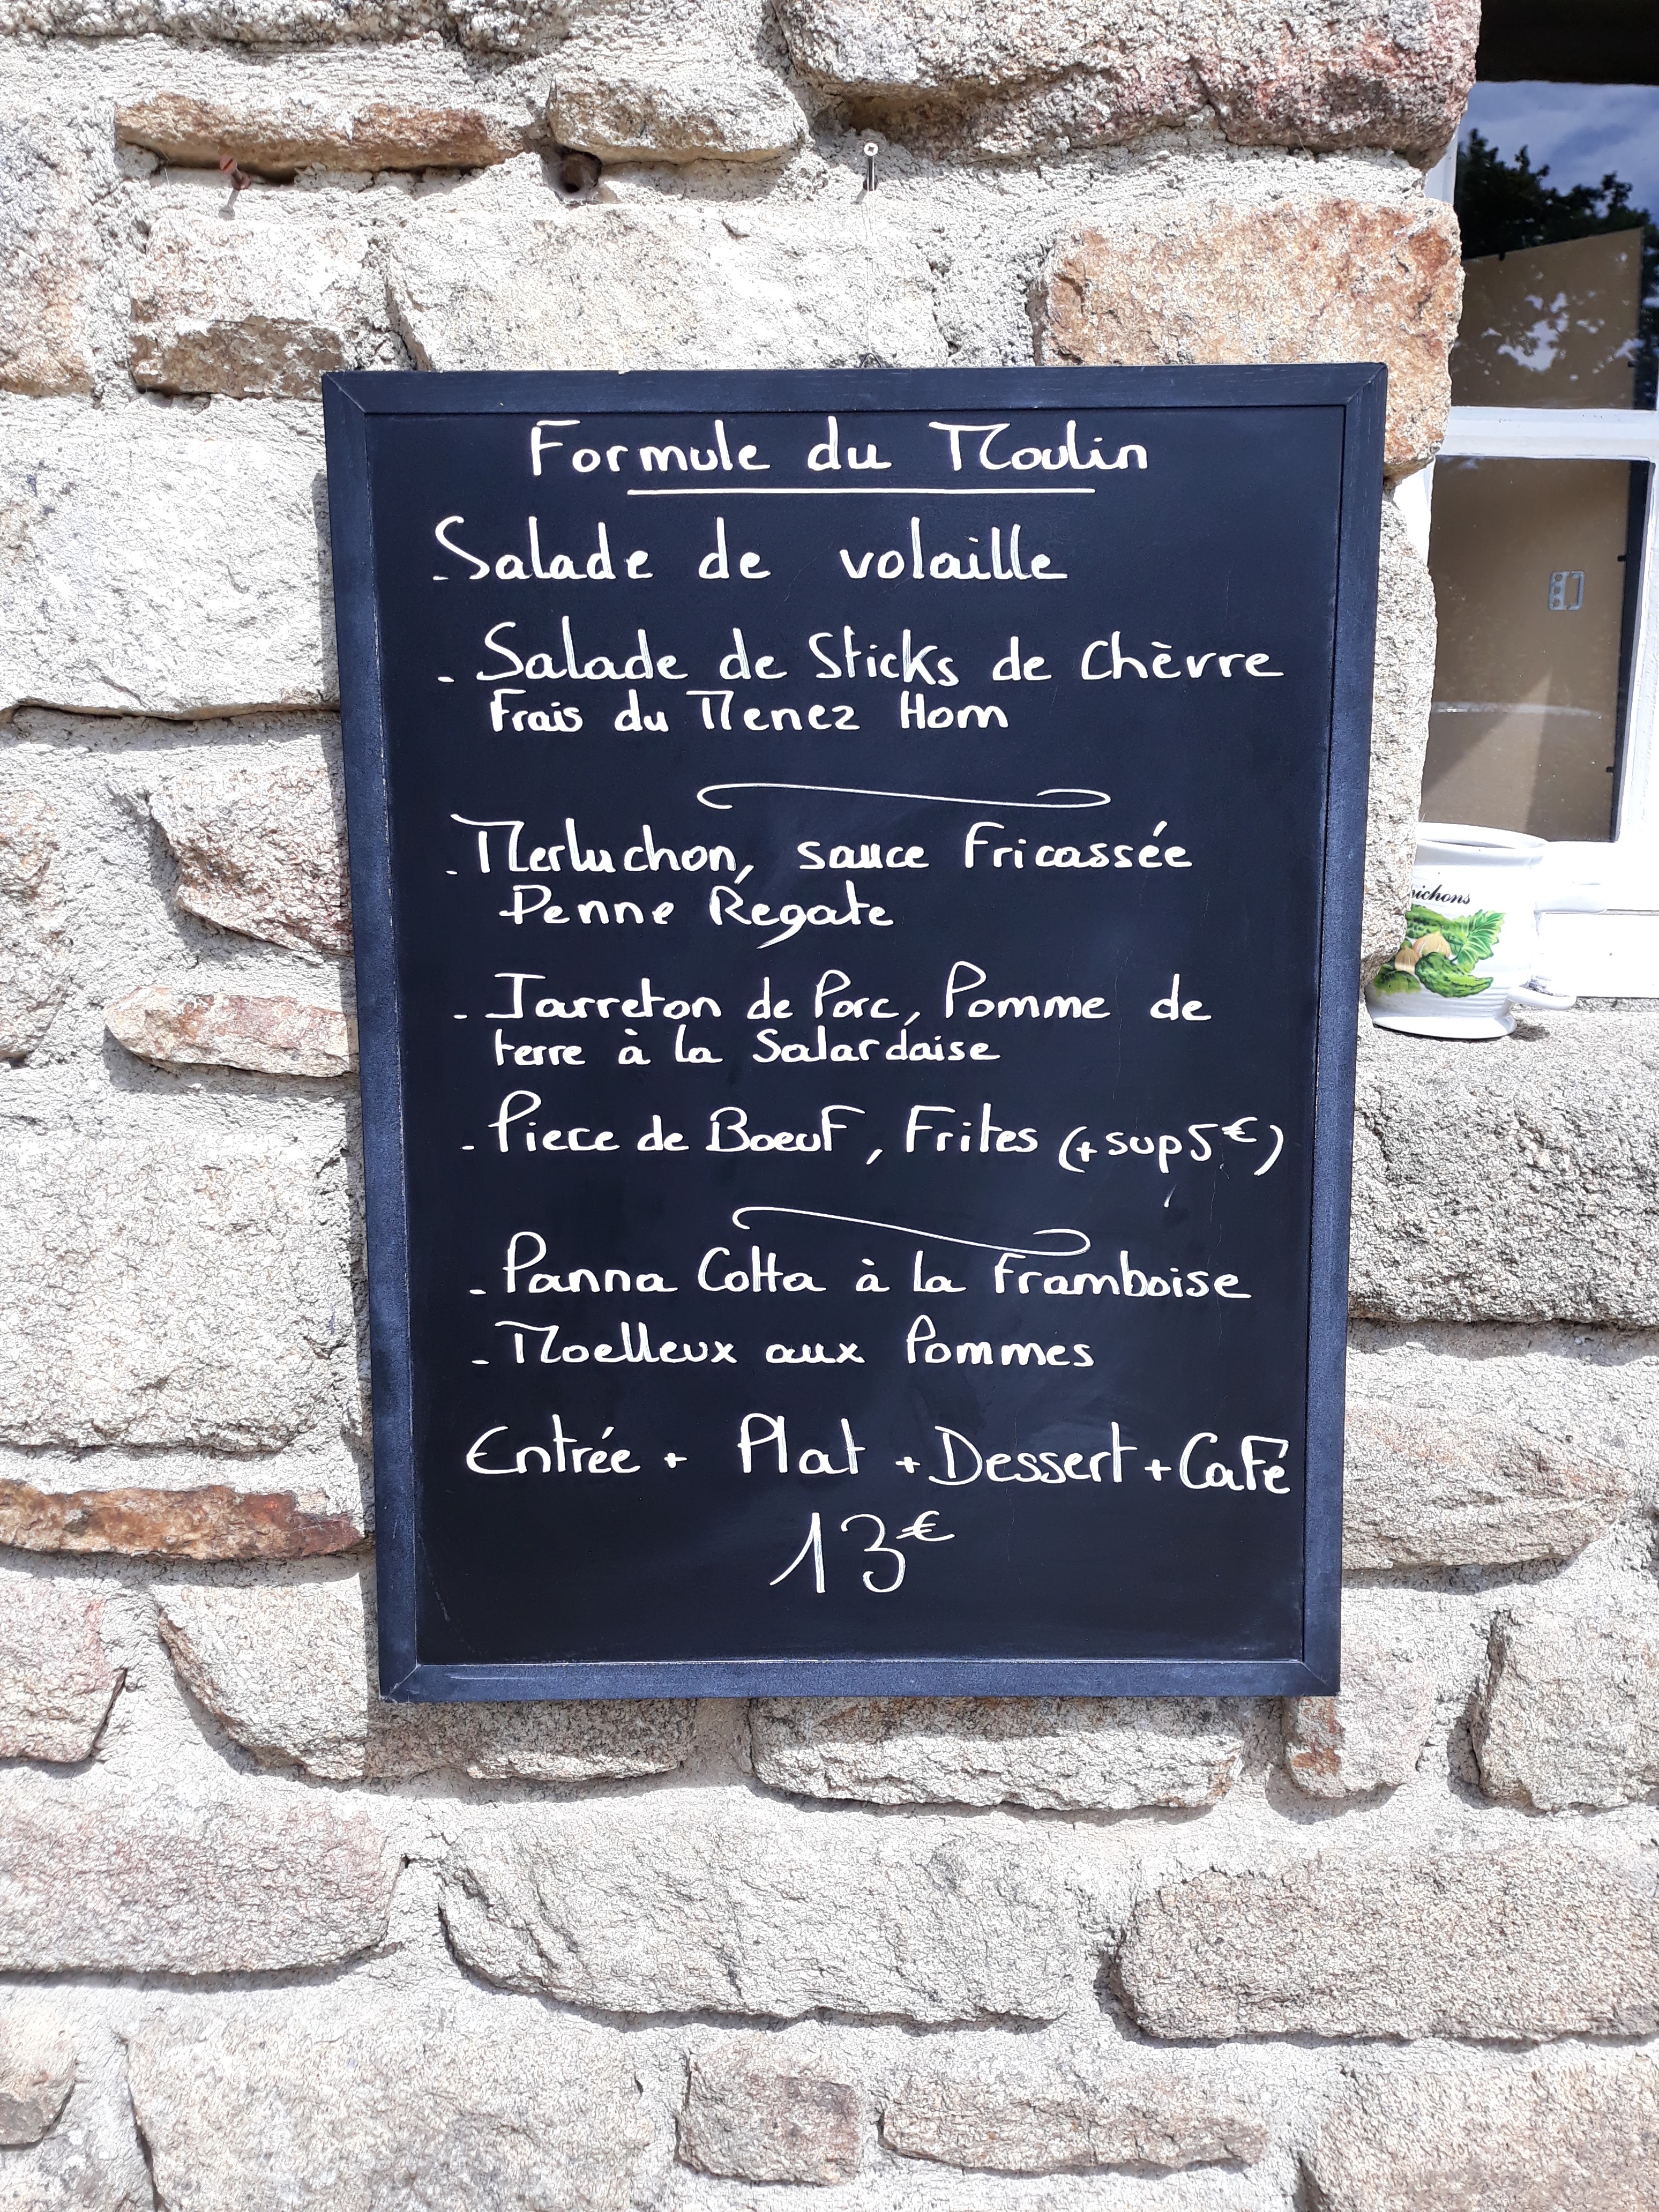 Formule du Moulin
- Salade de volaille
- Salade de Sticks de Chèvre
Frais du Menez Hom
- Merluchon, sauce Fricassée
Penne Régate
- Jarreton de Porc, Pomme de
terre à la Salardaise
- Piece de Boeuf, Frites (+ sup 5€)
- Panna Cotta à la Framboise
- Moelleux aux Pommes
Entrée + Plat + Dessert + Café
13€